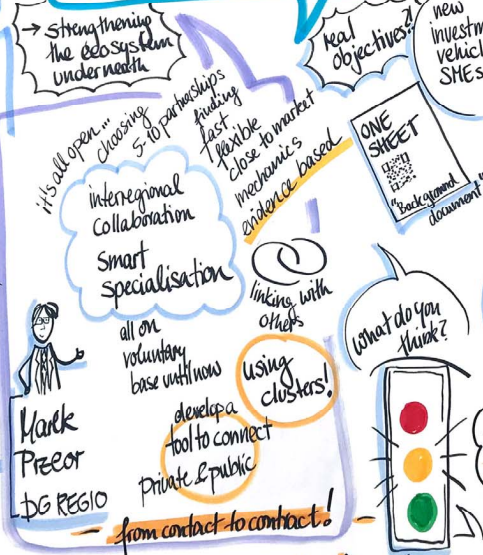 → strengthening
the ecosystem
underneath
real
objectives?!
new
investm
vehicl
SMEs
it's all open...
choosing
5-10 partnerships
finding
fast
flexible
close to market
mechanics
evidence based
ONE
SHEET
"Background
document"
interregional
Collaboration
Smart
specialisation
linking with
others
what do you
think?
all on
voluntary
base until now
using
clusters!
develop a
tool to connect
private & public
Marek
Przeor
DG REGIO
from contact to contract!